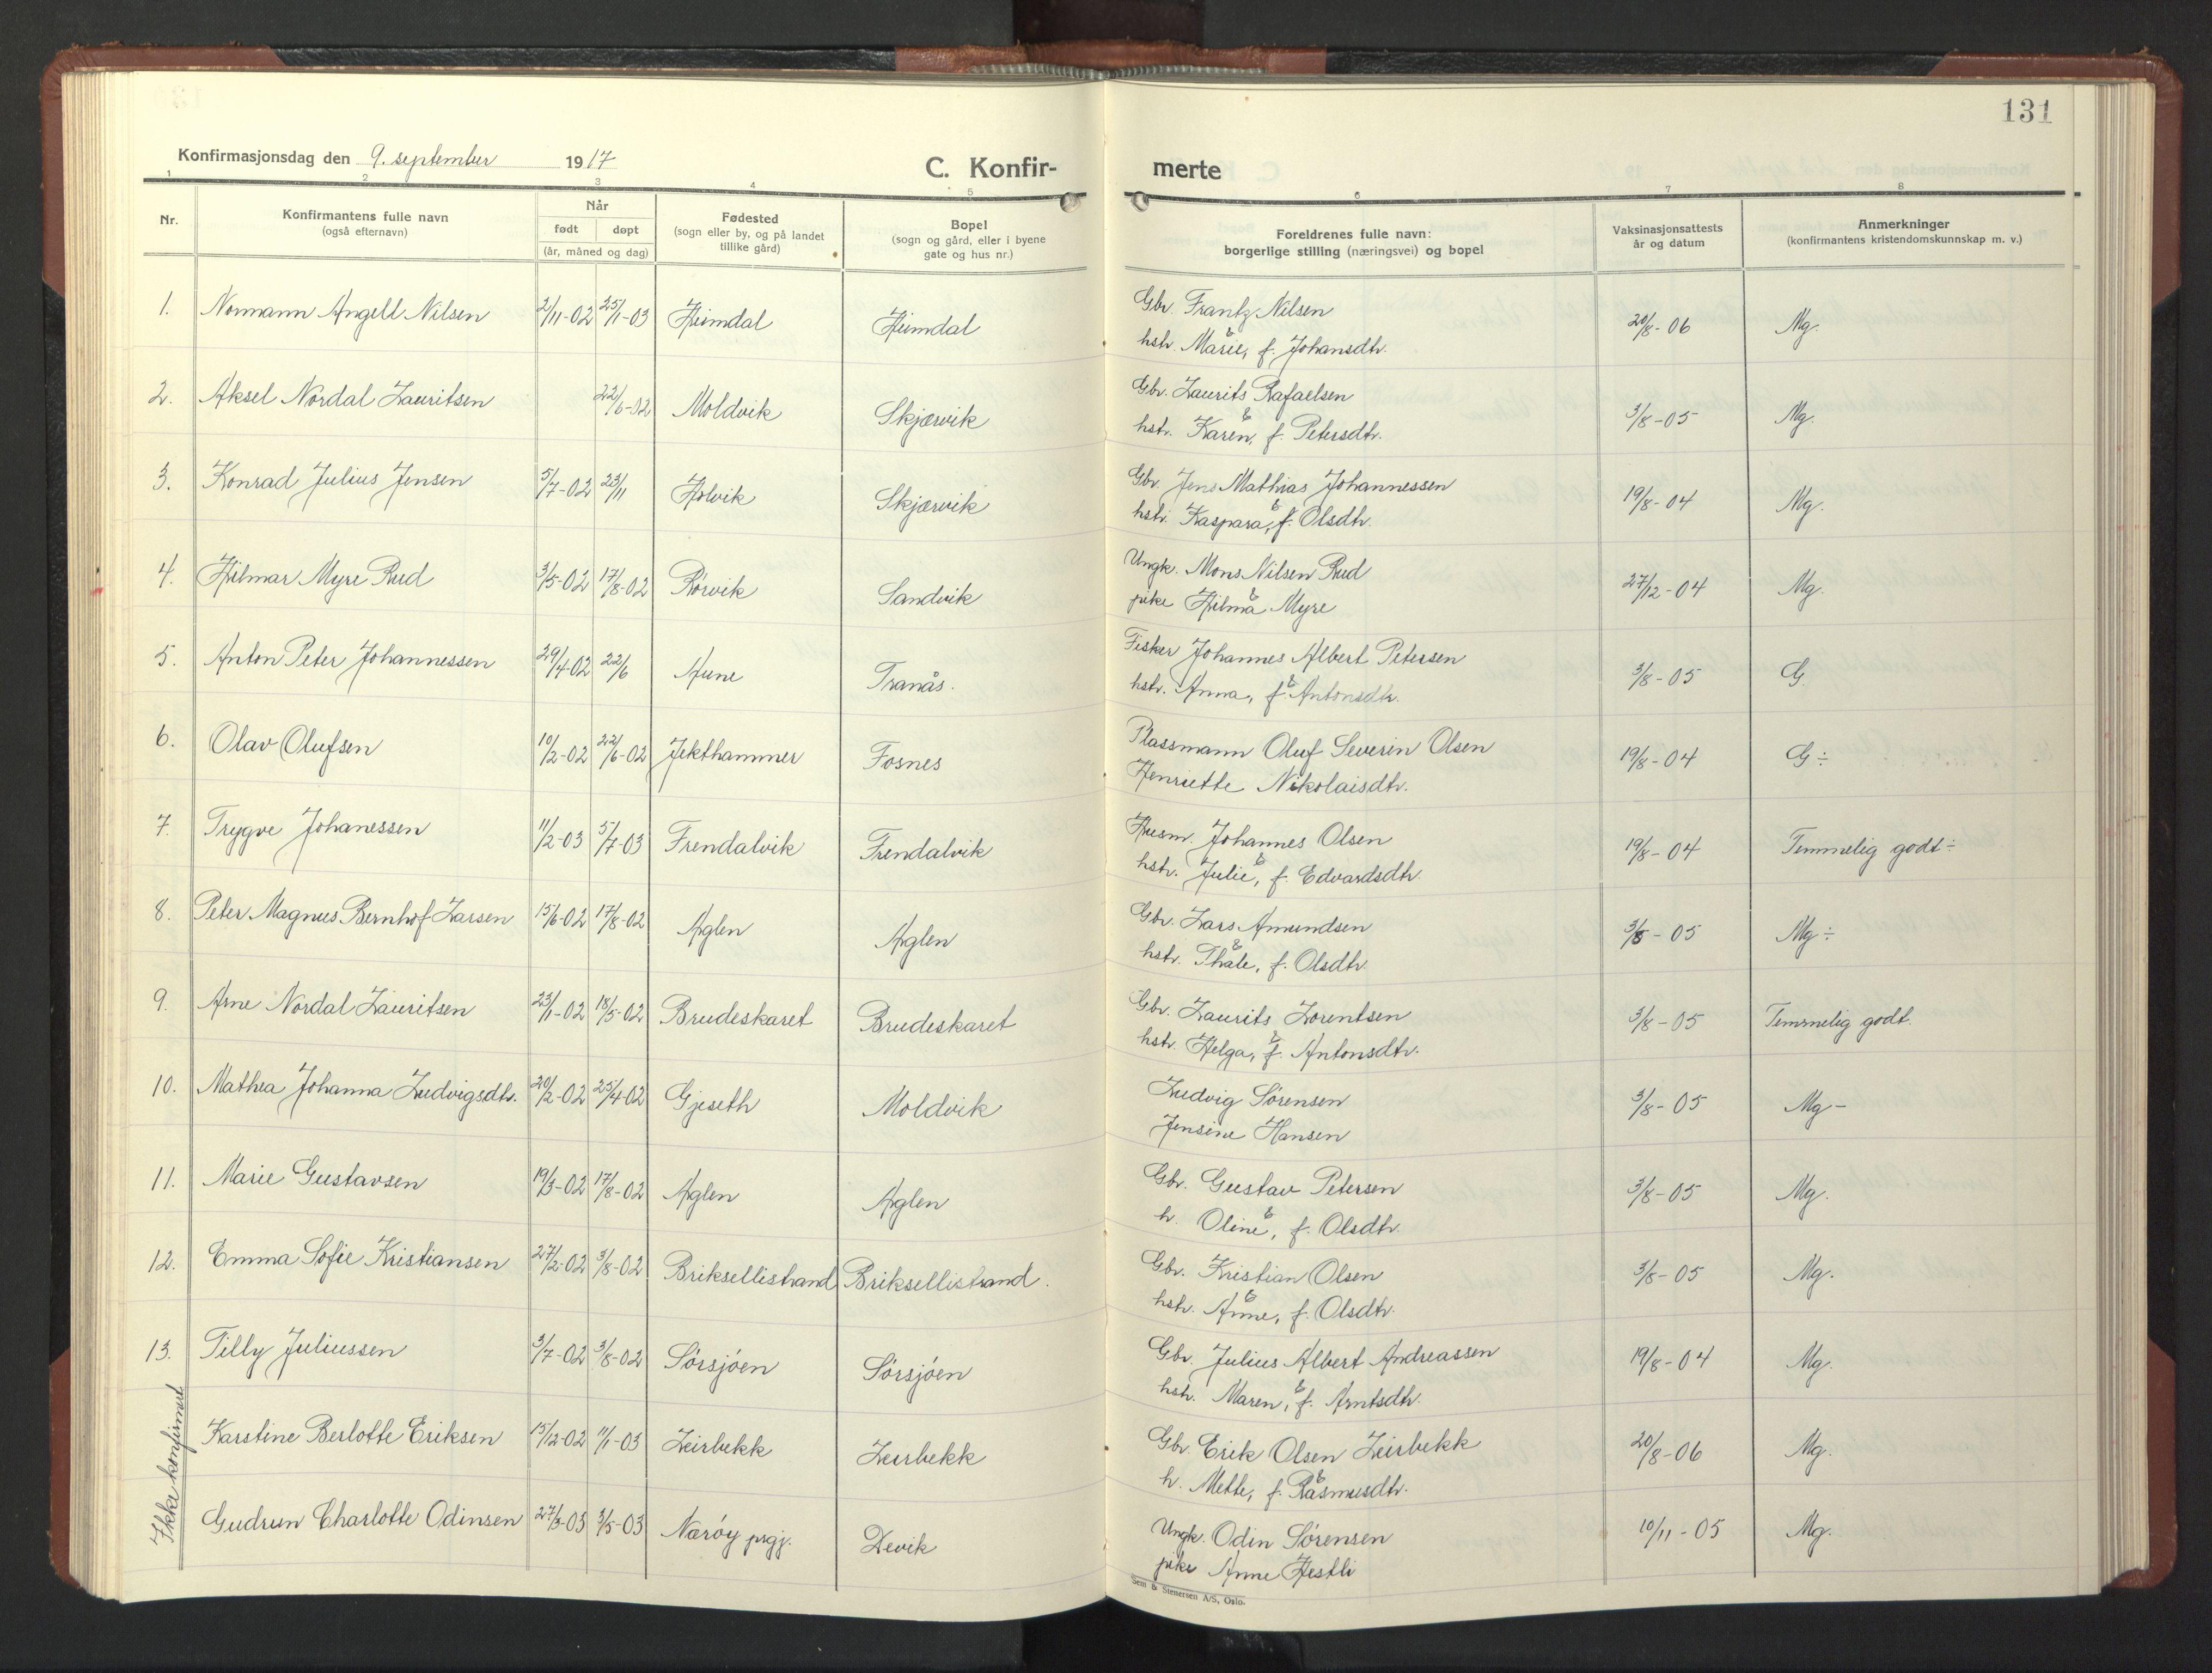 131
Konfirmasjonsdag den 9. september 1917
C. Konfir-
merte
1 2 3 4 5 6 7 8
Nr.
Konfirmantens fulle navn
(også efternavn)
Når
født døpt
(år, måned og dag)
Fødested
(sogn eller by, og på landet
tillike gård)
Bopel
(sogn og gård, eller i byene
gate og hus nr.)
Foreldrenes fulle navn:
borgerlige stilling (næringsvei) og bopel
Vaksinasjonsattests
år og datum
Anmerkninger
(konfirmantens kristendomskunnskap m. v.)
1. Normann Angell Nilsen 2/11-02 25/1-03 Heimdal Heimdal Gbr. Frantz Nilsen 20/8-06 Mg.
& hstr. Marie, f. Johansdtr.
2. Aksel Nordal Lauritsen 22/6-02 Moldvik Skjærvik Gbr. Laurits Rafaelsen 3/8-05 Mg.
& hstr. Karen, f. Petersdtr.
3. Konrad Julius Jensen 5/7-02 23/11 Holvik Skjærvik Gbr. Jens Mathias Johannessen 19/8-04 Mg.
& hstr. Kaspara, f. Olsdtr.
4. Hilmar Myre Rud 3/5-02 17/8-02 Rørvik Sandvik Ungk. Mons Nilsen Rud 27/12-04 Mg.
& pike Hilma Myre
5. Anton Peter Johannessen 29/4-02 22/6 Aune Tranås. Fisker Johannes Albert Petersen 3/8-05 G.
& hstr. Anna, f. Antonsdtr.
6. Olav Olufsen 10/2-02 22/6-02 Jekthammer Fosnes Plassmann Oluf Severin Olsen 19/8-04 G÷
Henriette Nikolaisdtr.
7. Trygve Johanessen 11/2-03 5/7-03 Frendalvik Frendalvik Husm. Johannes Olsen 19/8-04 Temmelig godt÷
& hstr. Julie, f. Edvardsdtr.
8. Peter Magnus Bernhof Larsen 15/6-02 17/8-02 Aglen Aglen Gbr. Lars Amundsen 3/8-05 Mg÷
& hstr. Thale, f. Olsdtr.
9. Arne Nordal Lauritsen 23/1-02 18/5-02 Brudeskaret Brudeskaret Gbr. Laurits Lorentsen 3/8-05 Temmelig godt.
& hstr. Helga, f. Antonsdtr.
10. Mathea Johanna Ludvigsdtr. 20/2-02 25/4-02 Gjeseth Moldvik Ludvig Sørensen 3/8-05 Mg-
Jensine Hansen
11. Marie Gustavsen 19/3-02 17/8-02 Aglen Aglen Gbr. Gustav Petersen 3/8-05 Mg.
& h. Oline, f. Olsdtr.
12. Emma Sofie Kristiansen 27/2-02 3/8-02 Briksellistrand Briksellistrand. Gbr. Kristian Olsen 3/8-05 Mg.
& hstr. Anne, f. Olsdtr.
13. Tilly Juliussen 3/7-02 3/8-02 Sørsjøen Sørsjøen Gbr. Julius Albert Andreassen 19/8-04 Mg.
& hstr. Maren, f. Arntsdtr.
Ikke konfirmert
Karstine Berlotte Eriksen 15/12-02 11/1-03 Leirbekk Leirbekk Gbr. Erik Olsen Leirbekk 20/8-06 Mg.
& h. Mette, f. Rasmusdtr.
Gudrun Charlotte Odinsen 27/3-03 3/5-03 Nærøy prgj. Devik Ungk. Odin Sørensen 10/11-05 Mg.
pike Anne Hestli
Sem & Stenersen A/S, Oslo.